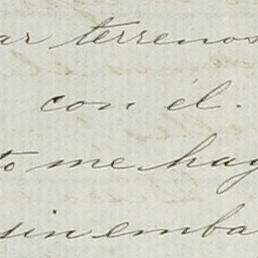 ar terrenos
con él.
to me hag
sin emba